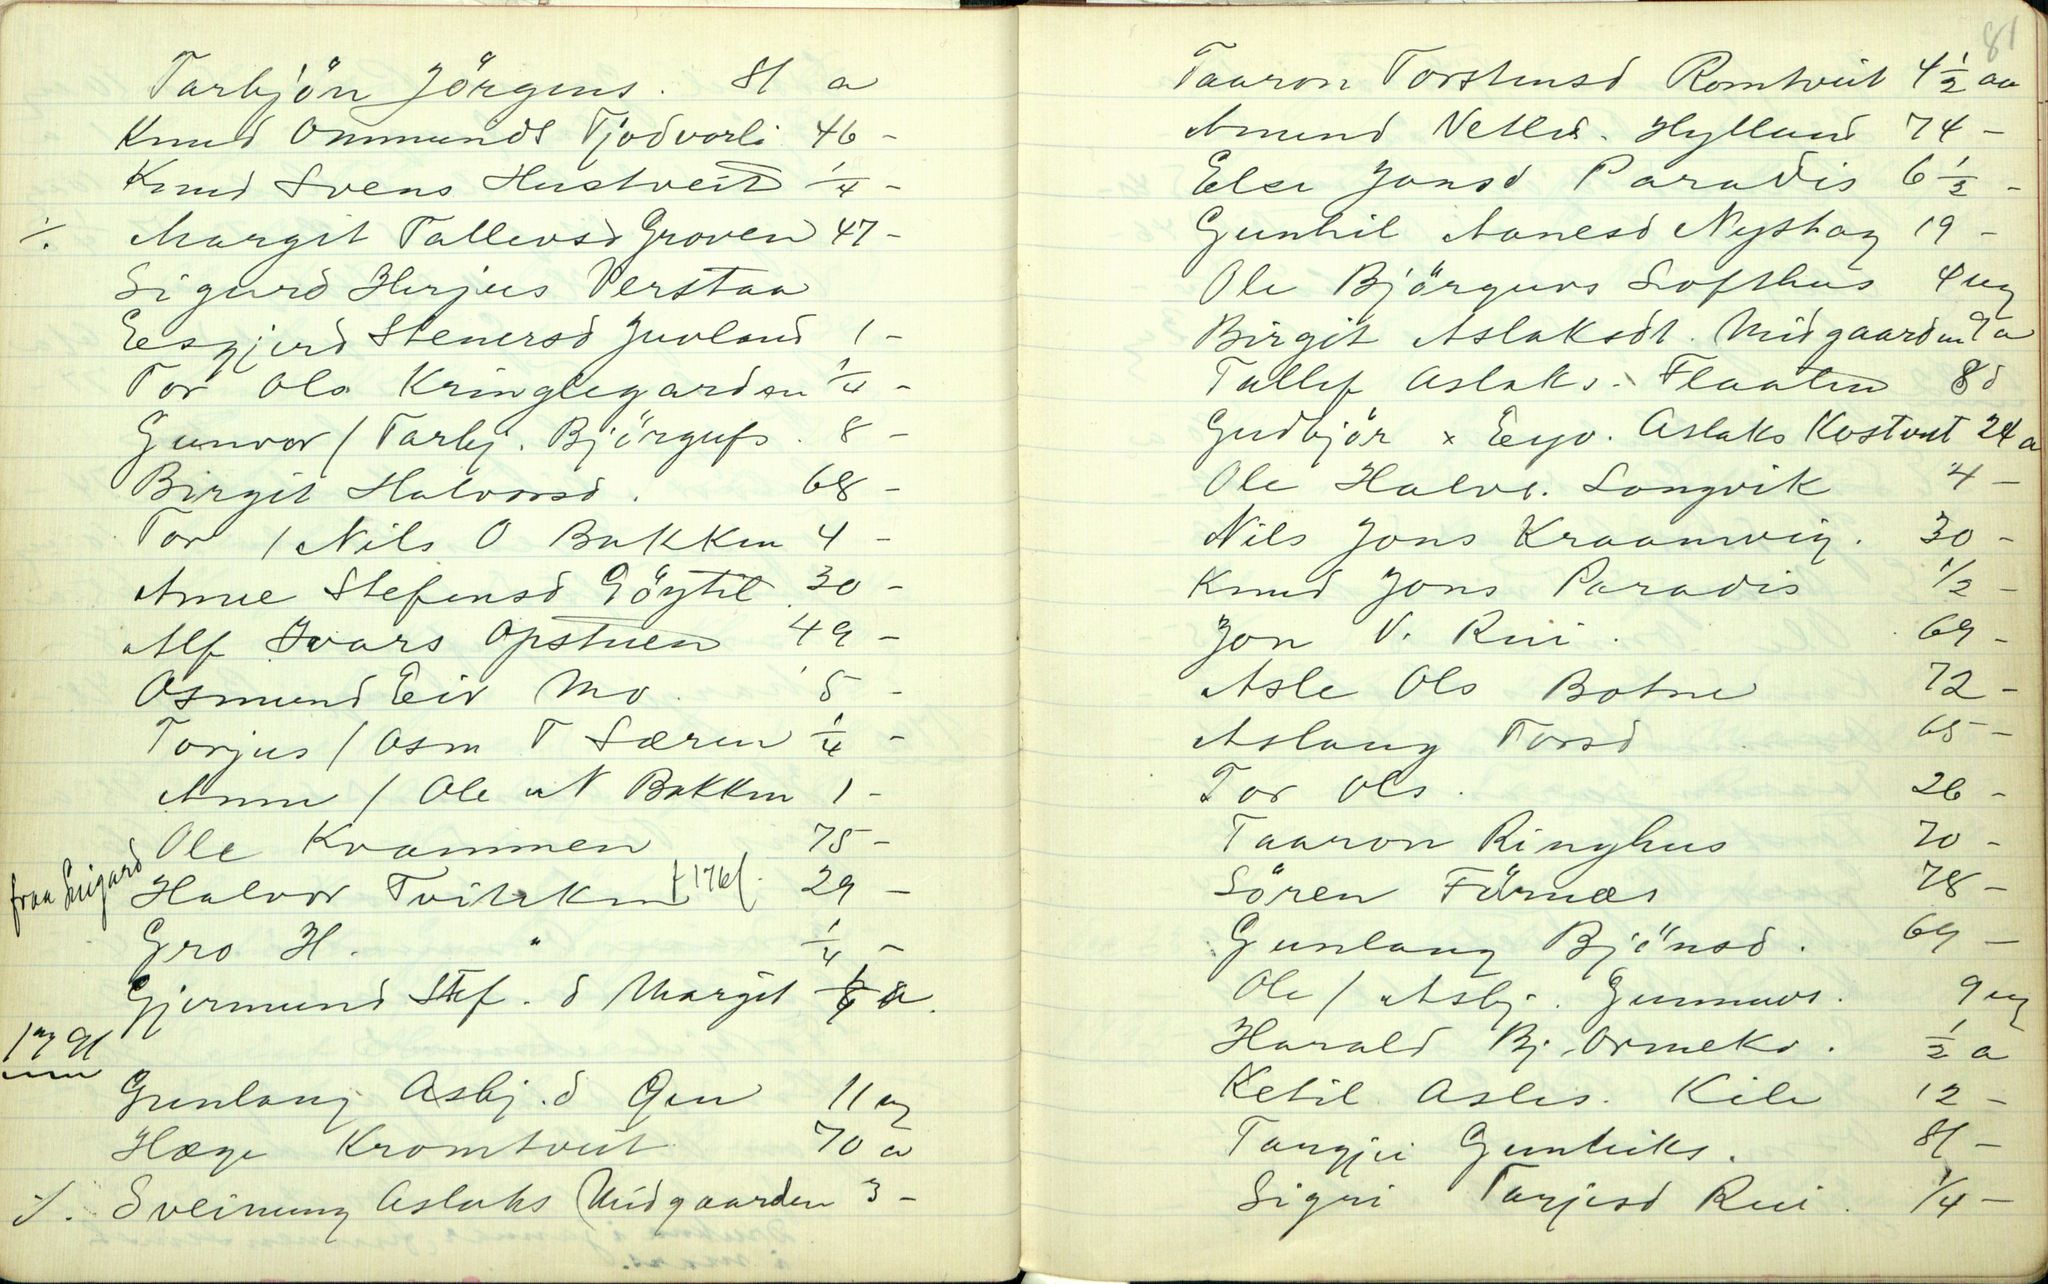 Tarbjön Jörgens. 81 a
Knud Ommunds Tjodvorli 46 -
Knud Svens Hustveit ¼ -
./. Margit Tallevsd Groven 47 -
Sigurd Herjus Verstaa
Eesgjerd Stenersd Juvland 1 -
Tor Ols Kringlegarden ¼ -
Gunvor / Tarbj. Björgufs. 8 -
Birgit Halvorsd. 68 -
Tor / Nils O Bakken 4 -
Anne Stefensd Göytil 30 -
Alf Ivars Opstuen 49 -
Osmund Eiv Mo. 5 -
Torjus / Osm T Særen ¼ -
Anne / Ole N Bakken 1 -
Ole Kvammen 75 -
fraa Luigard Halvor Tvitekin † 176/. 29 -
Gro H. " ¼ -
Gjermund Stef. d Margit a.
1791
Gunlaug Asbj.d 11 ug
Hæge Kromtveit 70 a
./. Sveinung Aslaks Midgaarden 3 -
81
Taaron Torstensd Romtveit 4½ aa
Amund Netlds. Hylland 74 -
Else Jonsd Paradis 6½ -
Gunhil Aanesd Nystog 19 -
Ole Björguvs Lofthus 4 ug
Birgit Aslaksdt. Midgaarden 9 a
Tallef Aslaks. Flaaten 8 d
Gudbjör x Eyv. Aslaks Kostveit 24 a
Ole Halvs. Songvik 4 -
Nils Jons Kraamvig. 30 -
Knud Jons Paradis ½ -
Jon V. Rui. 69 -
Asle Ols Botne 72 -
Aslaug Torsd 65 -
Tor Ols. 26 -
Taaron Ringhus 70 -
Sören Förnæs 78 -
Gunlaug Bjönsd. 69 -
Ole / Asbj. Gunnuvs. 9 ug
Harald Bj. Ormeks. ½ a
Ketil Asles. Kile 12 -
Targjei Gunleiks. 81 -
Sigri Tarjesd Rui. ¼ -